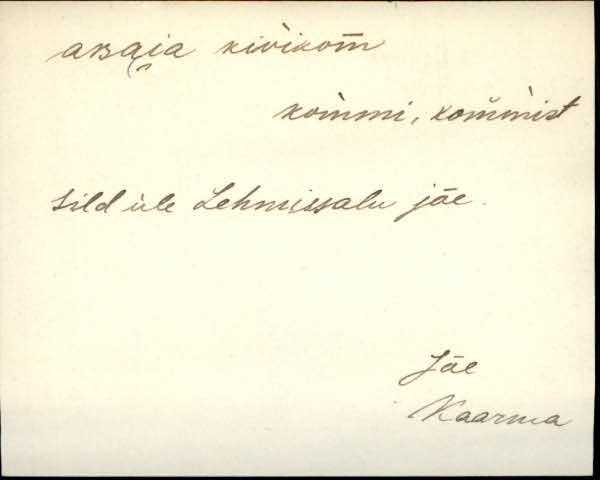 arsa̮ia kivìkom̄
kòmmi, kom̆mìst
Sild üle Lehmissalu jõe.
Jõe
Kaarma